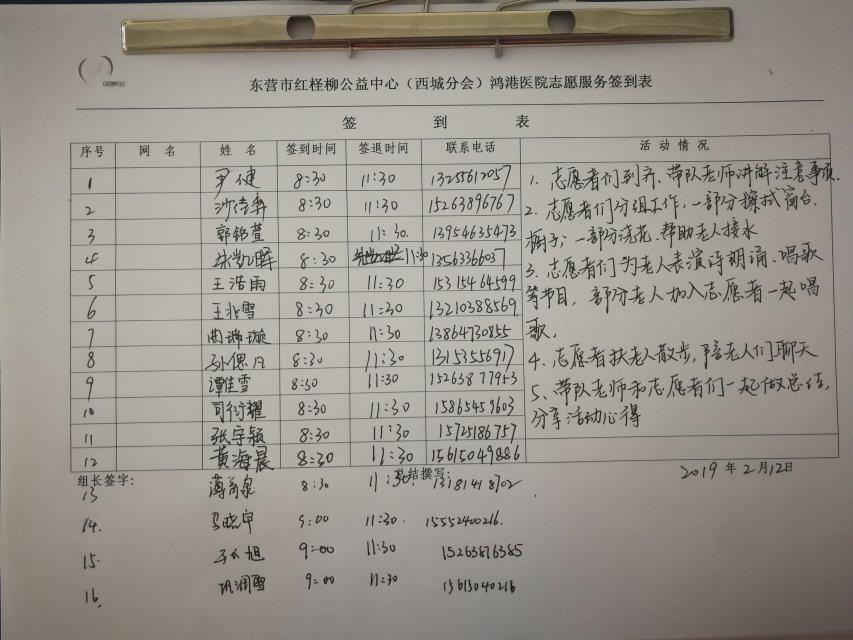 东营市红柽柳公益中心（西城分会）鸿港医院志愿服务签到表
签 到 表
序号 网 名 姓 名 签到时间 签退时间 联系电话 活 动 情 况
1 尹健 8:30 11:30 13255612057
2 8:30 11:30 15263896767
3 郭铭萱 8:30 11:30 13954635473
4 朱凯晖 8:30 11:30 1256336637
5 王浩雨 8:30 11:30 15315464599
6 王兆雪 8:30 11:30 13210388569
7 曲璐璇 8:30 11:30 13864730855
8 8:30 11:30 13153556917
9 谭佳雪 8:30 11:30 15263877953
10 司衍耀 8:30 11:30 15865459603
11 张宇颖 8:30 11:30 1572586757
12 黄海晨 8:30 11:30 15615049886
1. 志愿者们到齐，带队老师讲解注意事项.
2. 志愿者们分组工作，一部分擦拭窗台、
桶子；一部分浇花，帮助老人接水
3. 志愿者们为老人表演诗朗诵、唱歌
等节目，部分老人加入志愿者一起唱
歌.
4. 志愿者扶老人散步，陪老人们聊天
5、带队老师和志愿者们一起做总结，
分享活动心得
组长签字: 总结撰写:
2019 年 2月12日
13 8:30 11:30 13181418702
14. 马晓宇 9:00 11:30. 15552400216.
15. 9:00 11:30 15263876385
16. 巩润雪 9:00 11:30 15615040216